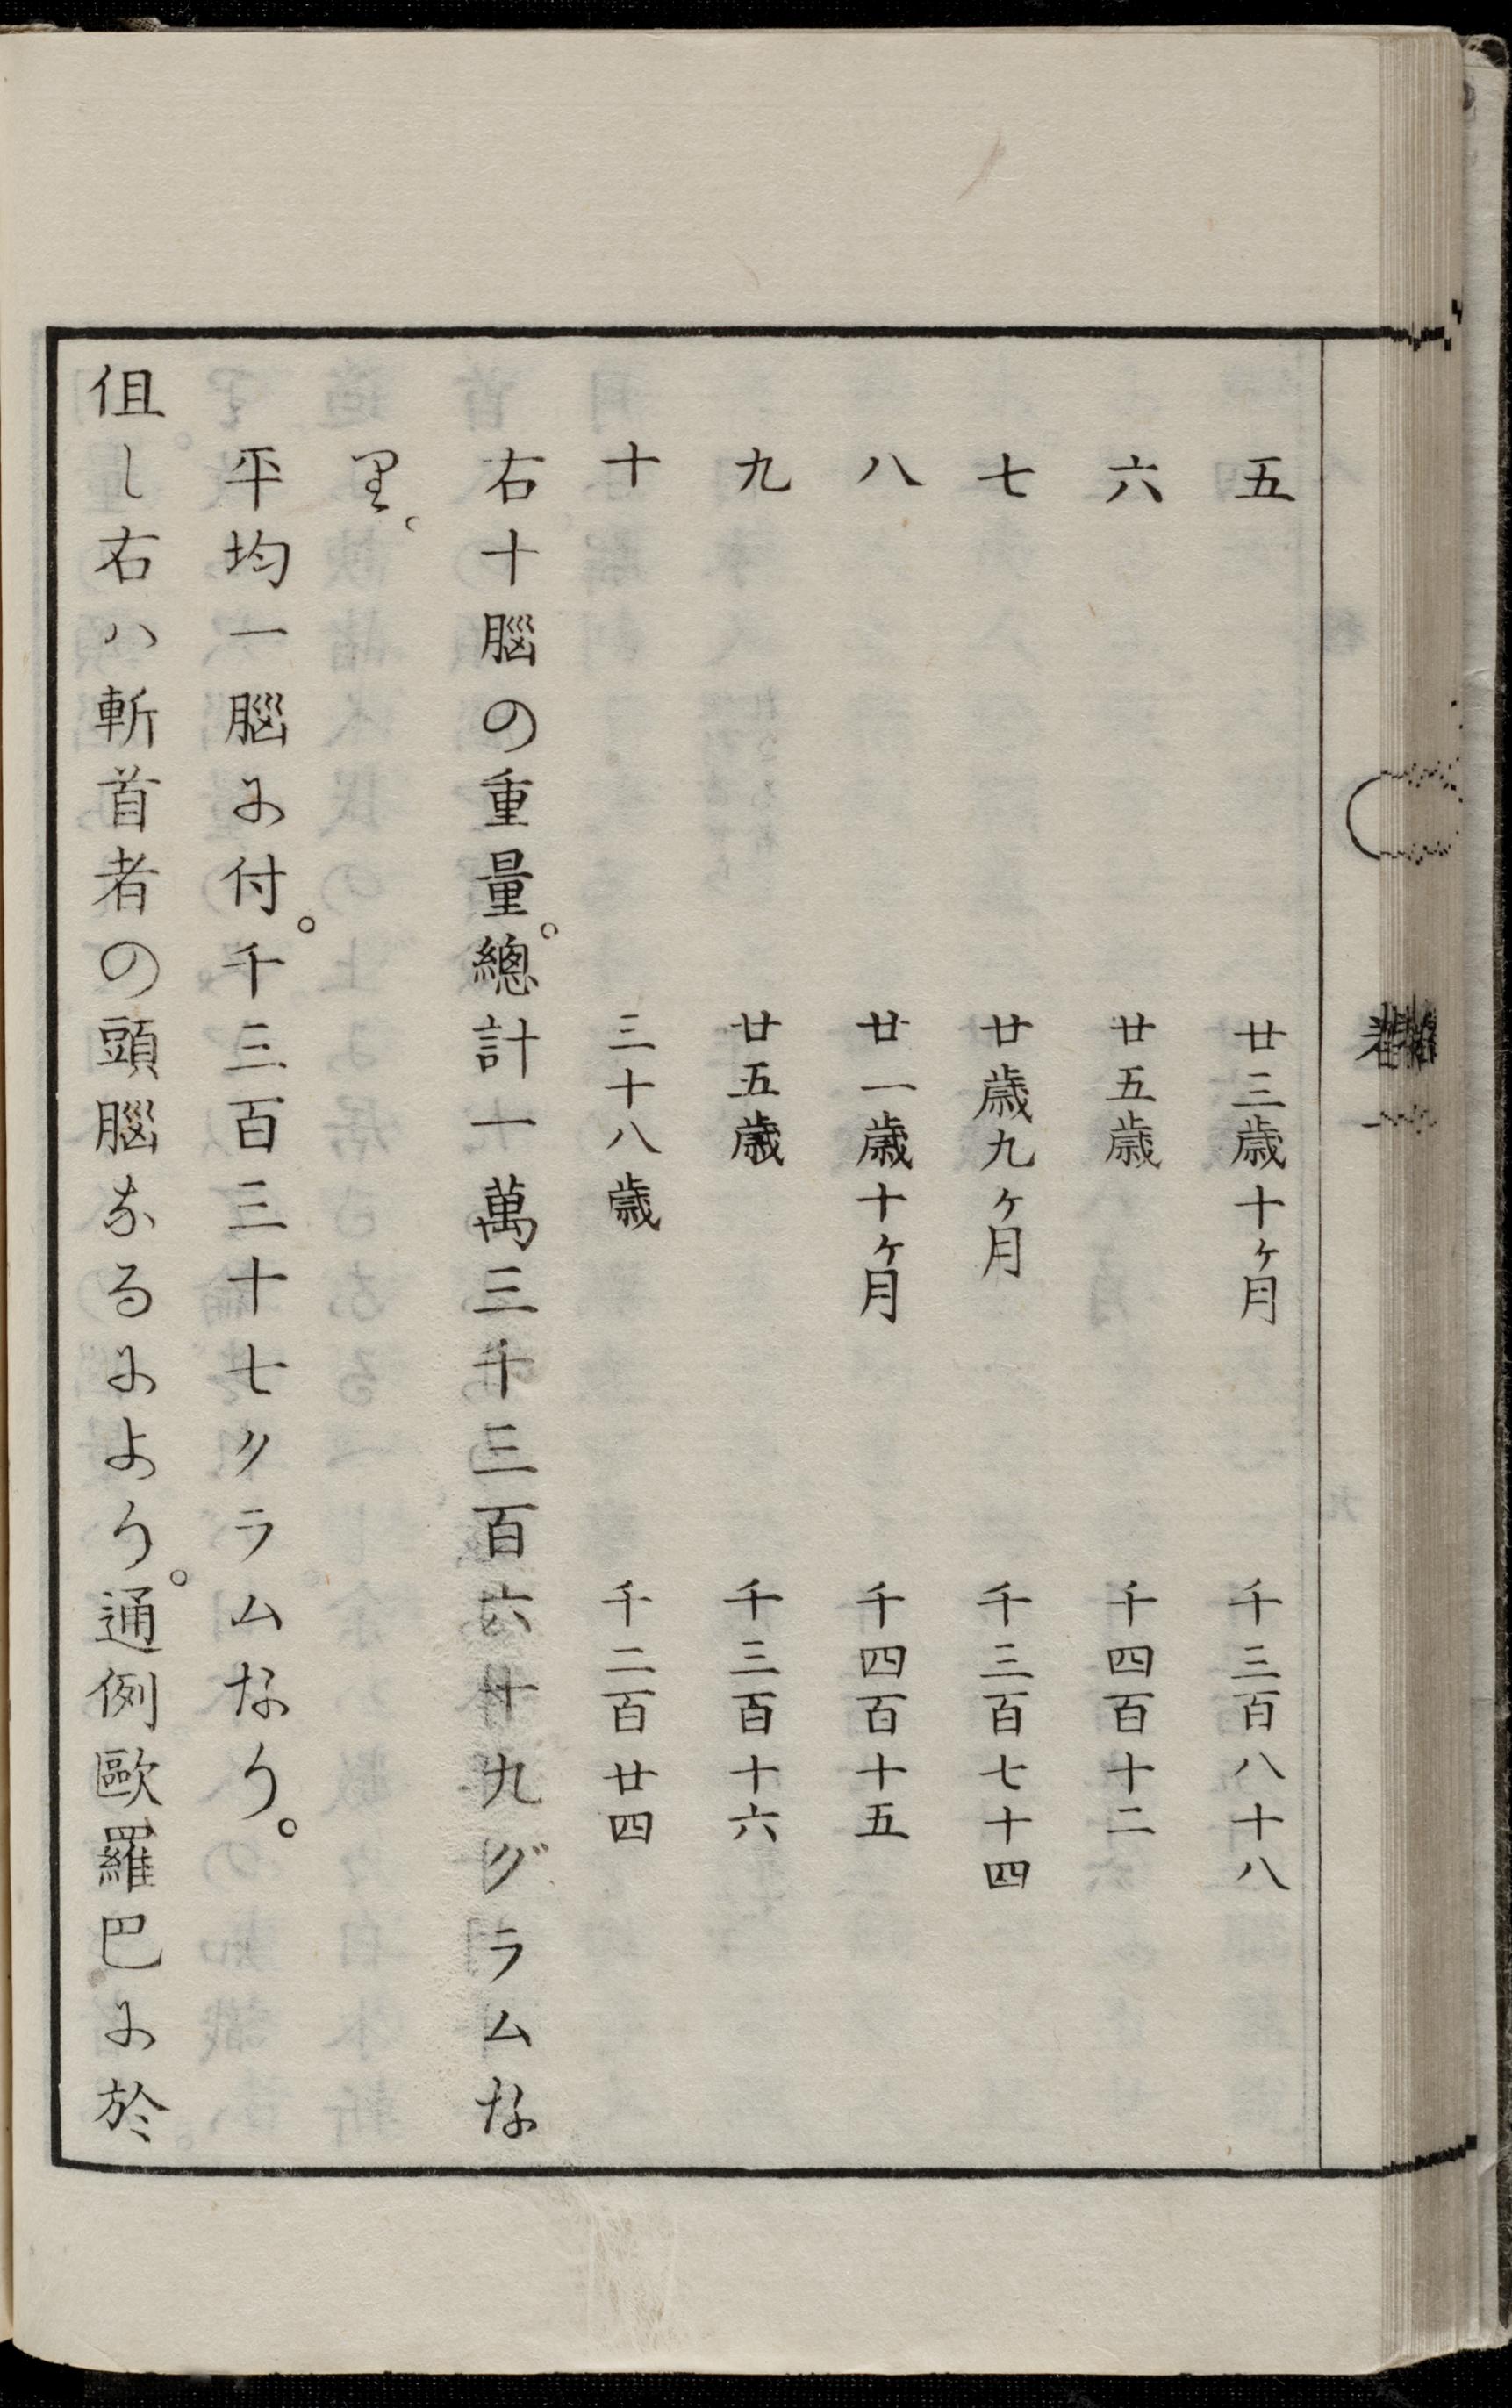 五 廿三歳十ヶ月 千三百八十八
六 廿五歳 千四百十二
七 廿歳九ヶ月 千三百七十四
八 廿一歳十ヶ月 千四百十五
九 廿五歳 千三百十六
十 三十八歳 千二百廿四
右十腦の重量。總計一萬三千三百六十九グラムな
り。
平均一腦に付。千三百三十七クラムなり。
伹し右ハ斬首者の頭腦なるにより。通例歐羅巴に於